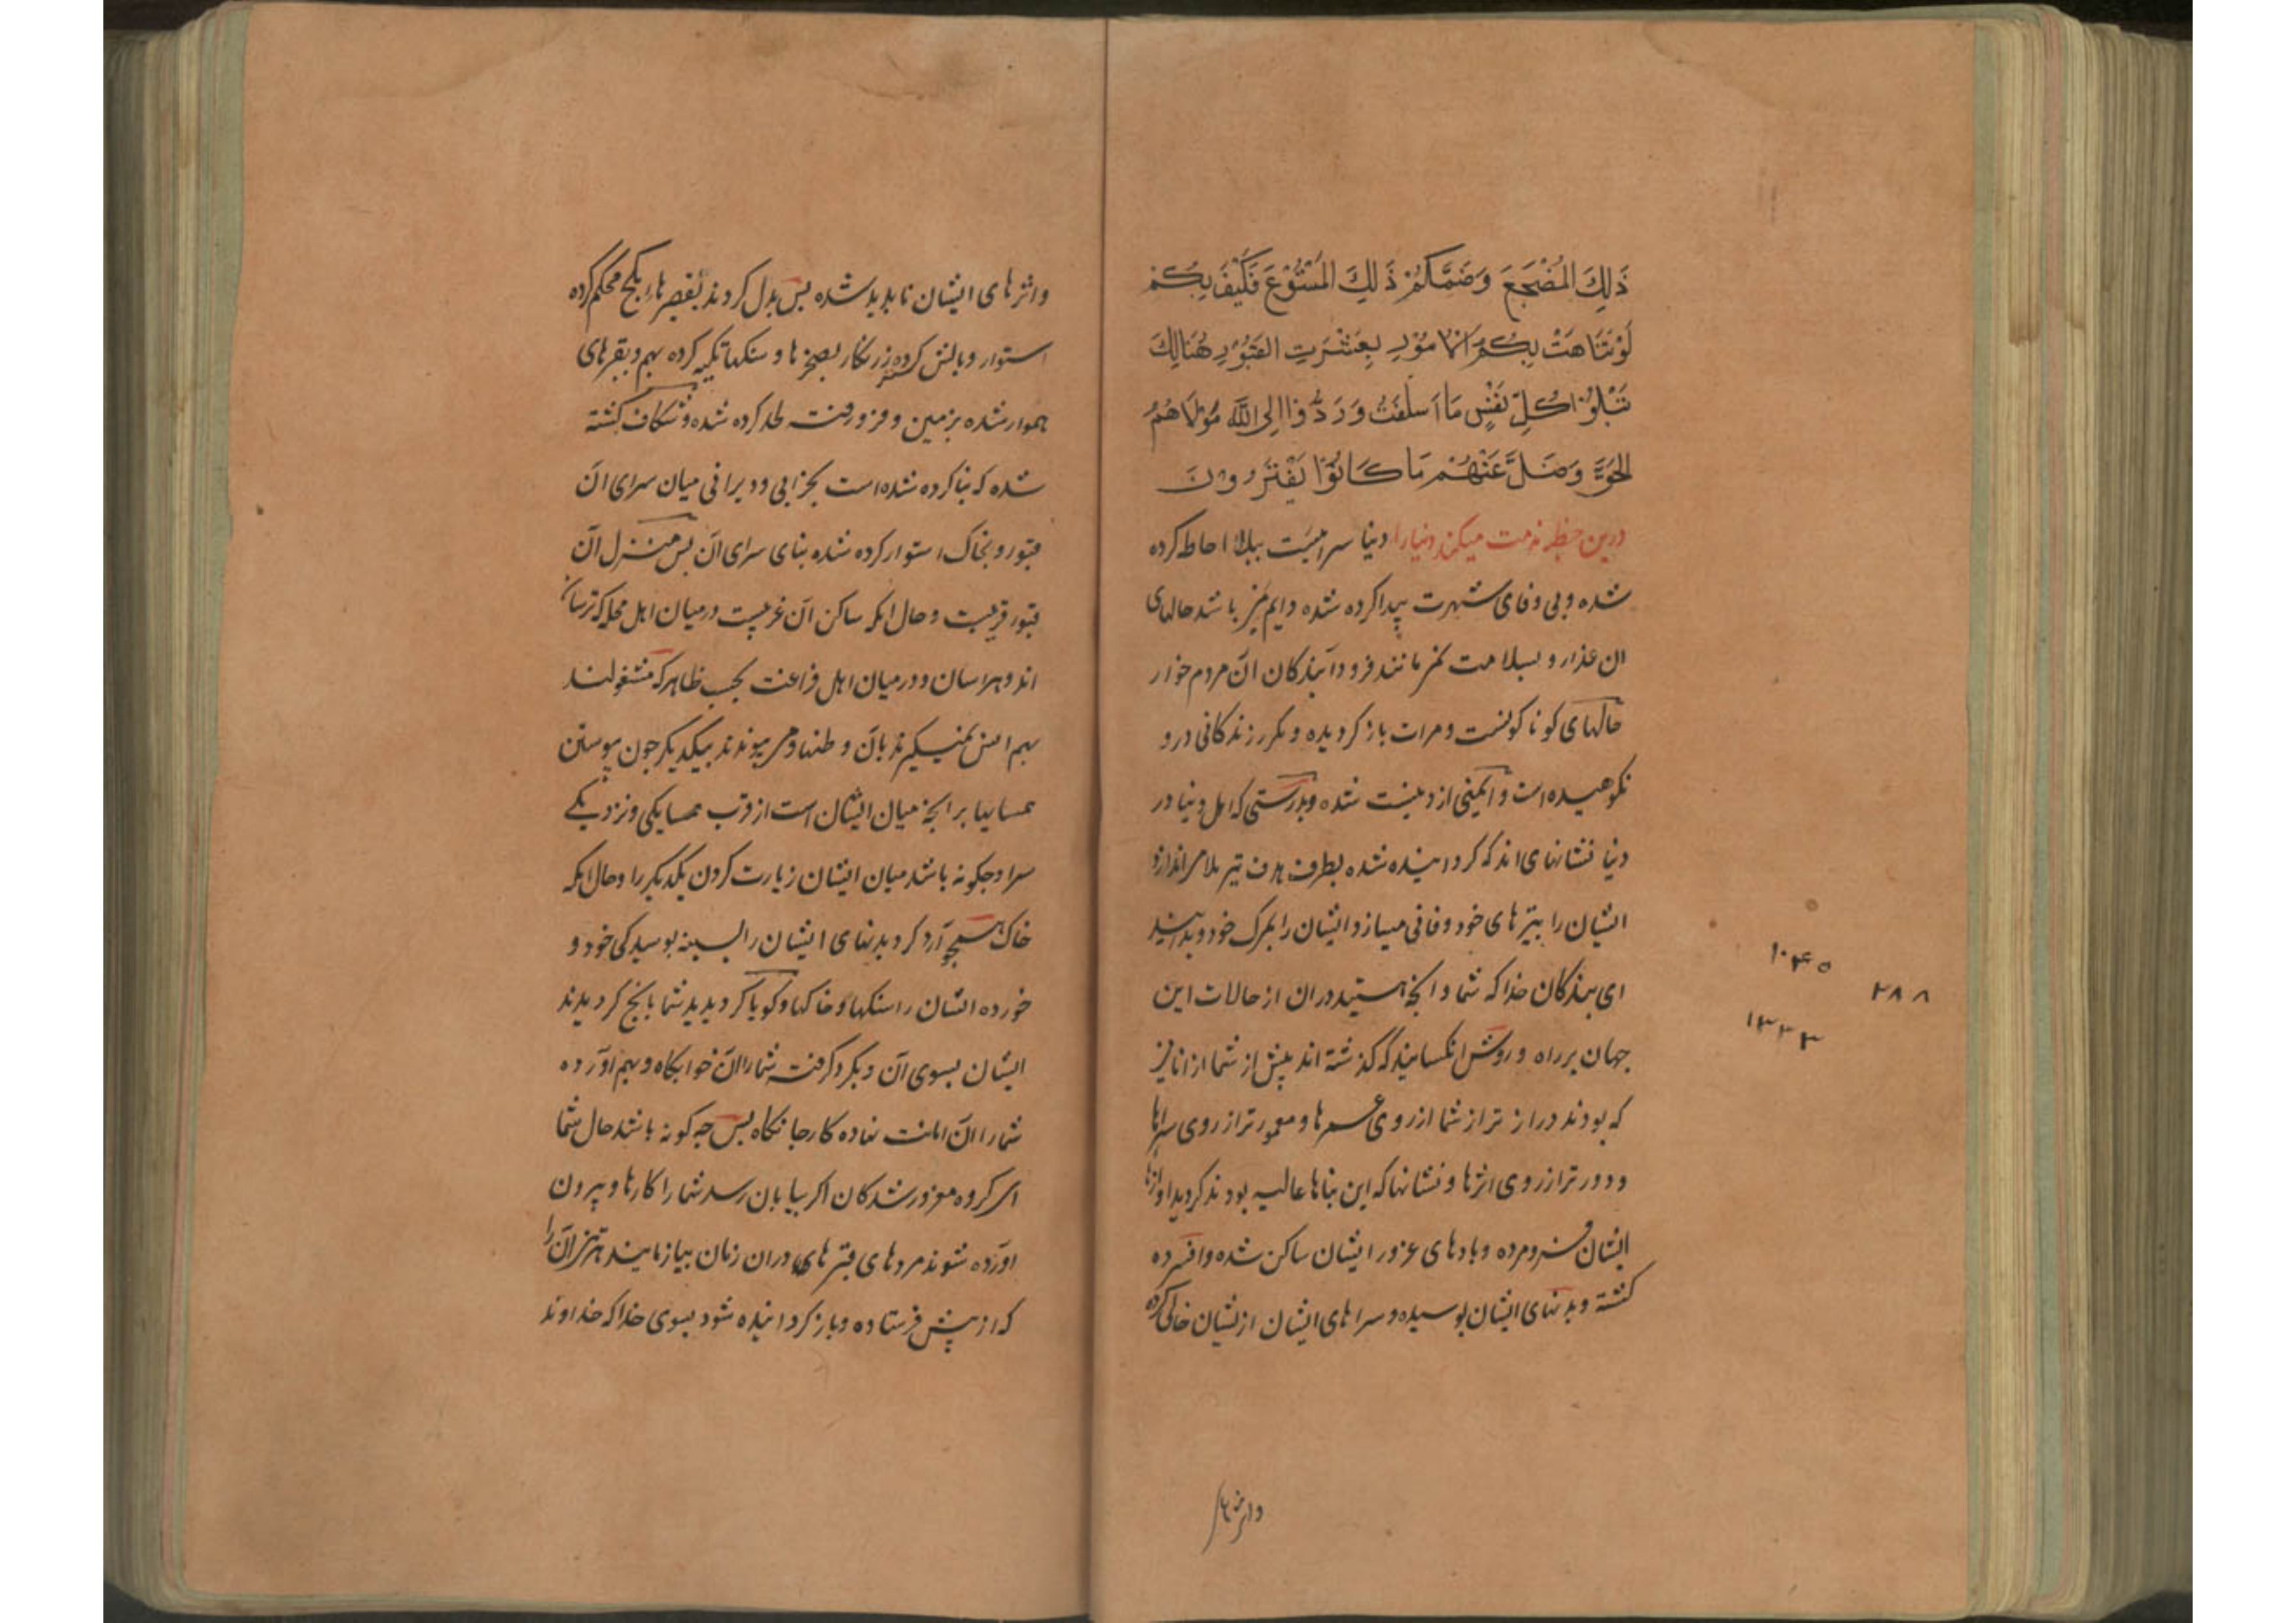 ذَلِكَ المُضْجَعَ وَضَمَّكُمْ ذَلِكَ المُسْتَوْدَعَ فَكَيْفَ بِكُمْ
لَوْ تَنَاهَتْ بِكُمْ الْاُمُوْرِ بِعَثْرَتِ القُبُوْرِ هُنَالِكَ
تَبْلُوْا كُلّ نَفْسٍ مَا اَسلَفَتْ وَرَدُّوْا اِلى اللّه مَوْلَاهُمُ
الحَقِّ وَضَلَّ عَنْهُمْ مَا كَانُوْا يَفْتَرُوْنَ
درین خطبه مذمت میکند دنیا را دنیا سرائیست ببلا احاطه کرده
شده و بی وفای شهرت پیدا کرده شده دایم نیز باشد حالهای
ان غدار و بسلامت نمی مانند فرود آیندکان آن مردم خوار
حالهای کوناکونست و مرات باز کردیده و مکرر زندکانی در و
نکوهیده است و ایمنی از و نیست شده و بدرستی که اهل دنیا در
دنیا نشانهای اند که کردانیده شده بطرف هدف تیر بلا می اندازد
ایشان را بتیرهای خود و فانی میسازد ایشان را بمرک خود و بدانید
ای بندکان خدا که شما و انچه هستید دران از حالات این
جهان بر راه و روش انکسانید که کذشته اند پیش از شما از انانیز
که بودند دراز تر از شما از روی عمرها و معمورتر از روی سراها
و دورتر از روی اثرها و نشانها که این بناها عالیه بودند کردید اوازها
ایشان فرومرده و بادهای غرور ایشان ساکن شده و افسرده
کشته و بدنهای ایشان بوسیده و سراهای ایشان از نشان خالی کرده
واثرهای
۱۰۴۵
۲۸۸
۱۳۳۳
واثرهای ایشان ناپدید شده پس بدل کردند بقصرهاء بکچ محکم کرده
استوار و بالش کرده زرنکار بصخرها و سنکها تکیه کرده بهم و بقبرهای
هموار شده بزمین و فرو رفته لحد کرده شده و شکاف کشته
شده که بنا کرده شده است بخرابی و ویرانی میان سرای آن
قبور و بخاک استوار کرده شده بنای سرای آن پس منزل آن
قبور قریبست و حال انکه ساکن آن غریبست درمیان اهل محله که ترسان
اند و هراسان و درمیان اهل فراغت بحسب ظاهر که مشغولند
بهم انس نمیکیرند بآن وطنها و نمی پیوندند بیکدیکر چون پیوستن
همسایها بر انچه میان ایشان است از قرب همسایکی و نزدیکی
سرا و چکونه باشد میان ایشان زیارت کردن یکدیکر را و حال انکه
خاک آرد کردید بدنهای ایشان را بسینه بوسیدکی خود و
خورده ایشان را سنکها و خاکها و کویا کردیدید شما بانچ کردیدند
ایشان بسوی آن و بکرو کرفت شما را آن خوابکاه و بهم آورده
شما را آن امانت نهاده کار جانکاه پس چه کونه باشد حال شما
ای کروه مغرور شدکان اکر بپایان رسد شما را کارها و بیرون
آورده شوند مردهای قبرهای دران زمان بیازمایند هر تنی آن را
که از پیش فرستاده و باز کردانیده شود بسوی خدا که خداوند